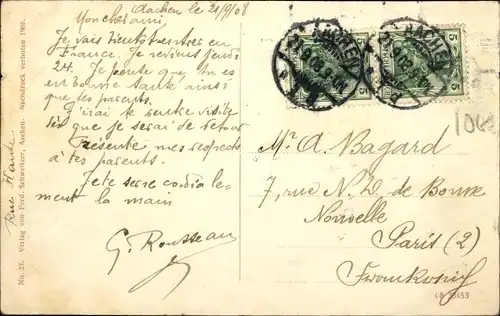 Aachen le 21/9/08
Mon cher ami,
Je vais bientôt rentrer en
France. Je reviens jeudi
24. Je pense que tu es
en bonne santé ainsi
que tes parents.
J'irai te rendre visite
dès que je serai de retour
Présente mes respects
à tes parents.
Je te serre cordiale-
ment la main
G. Rousseau
No. 23. Verlag von Ferd. Schweitzer, Aachen. Nachdruck verboten 1908.
AACHEN
AACHEN
5
5
Mr A. Bagard
7, rue N. D. de Bonne
Nouvelle
Paris (2)
Frankreich